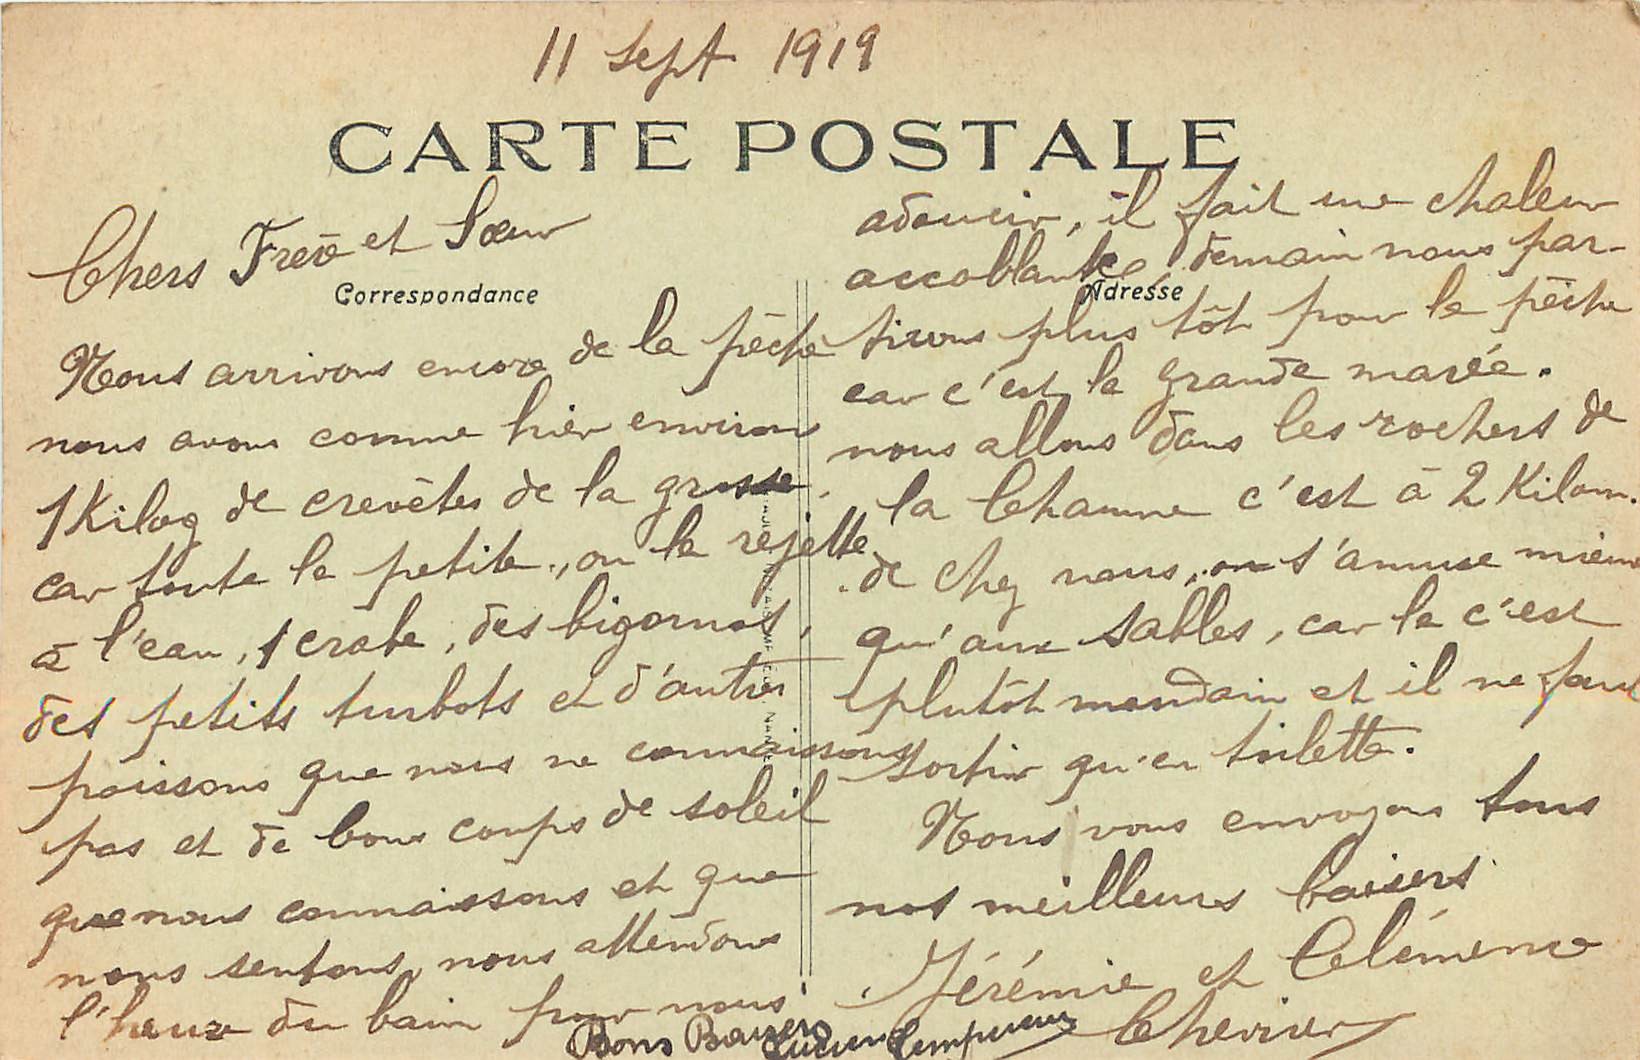 11 Sept 1919
CARTE POSTALE
Chers Frère et Sœur
Correspondance
Nous arrivons encore de la pêche
nous avons comme hier environ
1 Kilog de crevètes de la grosse,
car toute la petite, on la rejette
à l'eau, 1 crabe, des bigornos,
des petits turbots et d'autres
poissons que nous ne connaissons
pas et de bons coups de soleil
que nous connaissons et que
nous sentons, nous attendons
l'heure du bain pour nous
adoucir, il fait une chaleur
accablante, demain nous par-
Adresse
tirons plus tôt pour la pêche
car c'est la grande marée.
nous allons dans les rochers de
la Chaume c'est à 2 Kilom.
de chez nous, on s'amuse mieux
qu'aux Sables, car la c'est
plutôt mondain et il ne faut
sortir qu'en toilette.
Nous vous envoyons tous
nos meilleurs baisers
Jérémie et Clémence
Chevrier
Bons Baisers Lucien